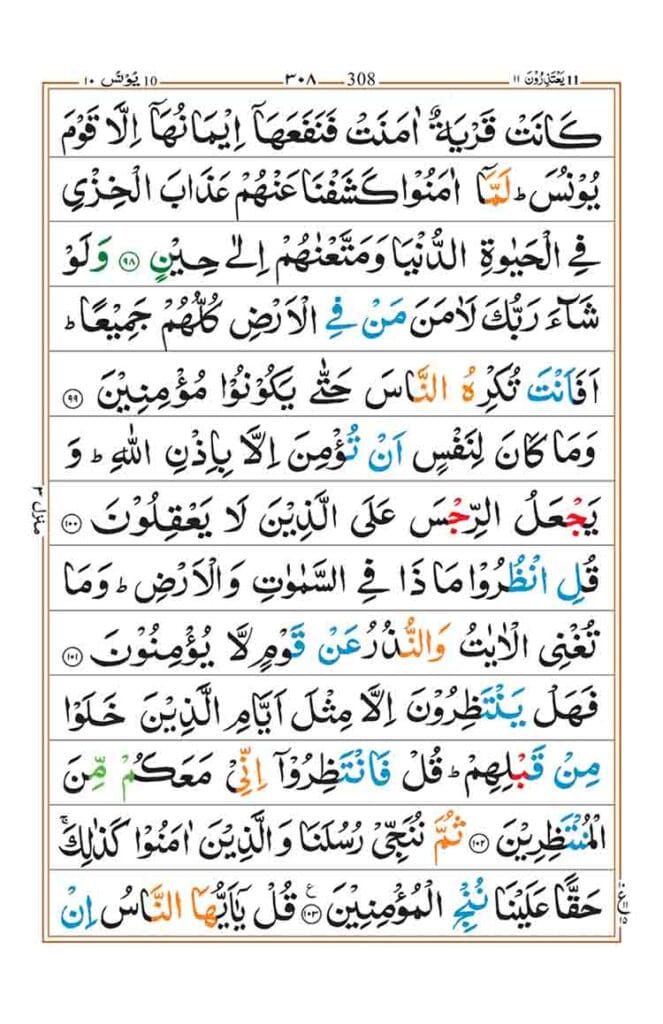 يَعْتَذِرُوْنَ ١١ 11 308 ٣٠٨ 10 يُوْنُس ١٠
كَانَتْ قَرْيَةٌ اٰمَنَتْ فَنَفَعَهَاۤ اِيْمَانُهَاۤ اِلَّا قَوْمَ
يُوْنُسَ ؕ لَمَّاۤ اٰمَنُوْا كَشَفْنَا عَنْهُمْ عَذَابَ الْخِزْيِ
فِي الْحَيٰوةِ الدُّنْيَا وَمَتَّعْنٰهُمْ اِلٰى حِيْنٍ ﴿٩٨﴾ وَلَوْ
شَآءَ رَبُّكَ لَاٰمَنَ مَنْ فِي الْاَرْضِ كُلُّهُمْ جَمِيْعًا ؕ
اَفَاَنْتَ تُكْرِهُ النَّاسَ حَتّٰى يَكُوْنُوْا مُؤْمِنِيْنَ ﴿٩٩﴾
وَمَا كَانَ لِنَفْسٍ اَنْ تُؤْمِنَ اِلَّا بِاِذْنِ اللّٰهِ ؕ وَ
يَجْعَلُ الرِّجْسَ عَلَى الَّذِيْنَ لَا يَعْقِلُوْنَ ﴿١٠٠﴾
قُلِ انْظُرُوْا مَاذَا فِي السَّمٰوٰتِ وَالْاَرْضِ ؕ وَمَا
تُغْنِى الْاٰيٰتُ وَالنُّذُرُ عَنْ قَوْمٍ لَّا يُؤْمِنُوْنَ ﴿١٠١﴾
فَهَلْ يَنْتَظِرُوْنَ اِلَّا مِثْلَ اَيَّامِ الَّذِيْنَ خَلَوْا
مِنْ قَبْلِهِمْ ؕ قُلْ فَانْتَظِرُوْۤا اِنِّيْ مَعَكُمْ مِّنَ
الْمُنْتَظِرِيْنَ ﴿١٠٢﴾ ثُمَّ نُنَجِّيْ رُسُلَنَا وَالَّذِيْنَ اٰمَنُوْا كَذٰلِكَ ۚ
حَقًّا عَلَيْنَا نُنْجِ الْمُؤْمِنِيْنَ ﴿١٠٣﴾ ع قُلْ يٰۤاَيُّهَا النَّاسُ اِنْ
منزل ٣